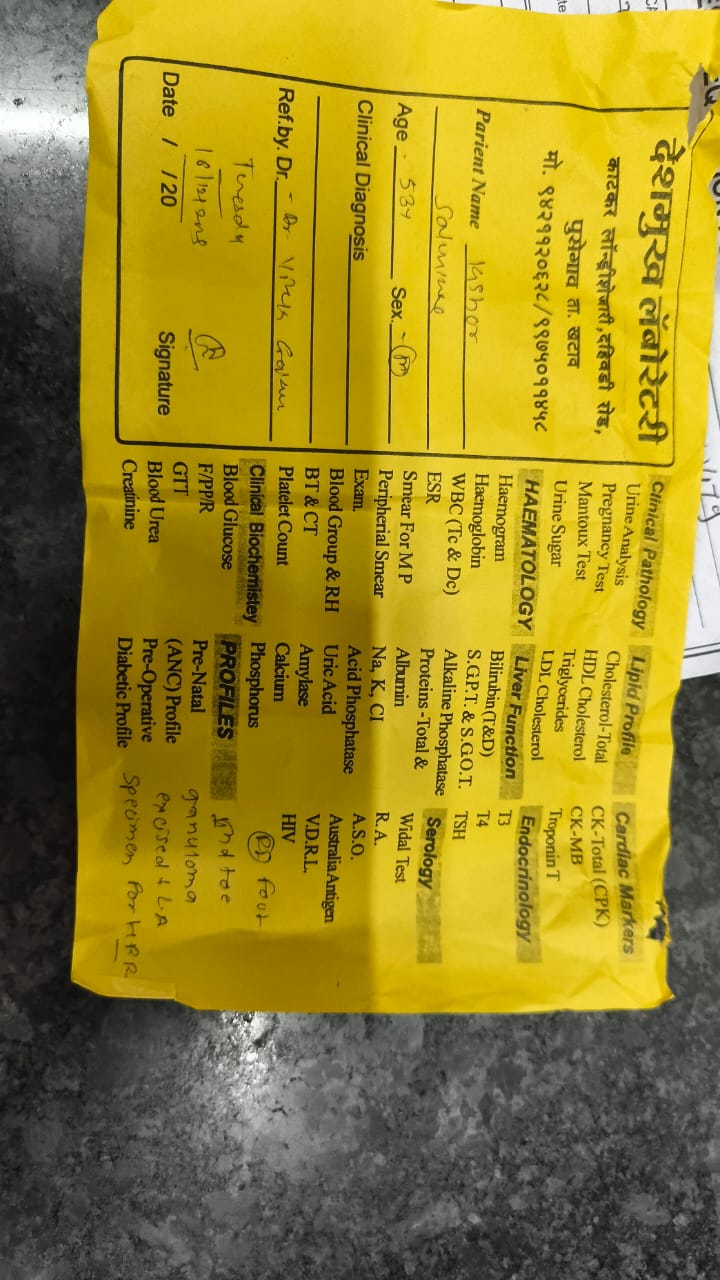 देशमुख लॅबोरेटरी
काटकर लॉन्ड्रीशेजारी, दहिवडी रोड,
पुसेगाव ता. खटाव
मो. ९४२११२०६२८/९९७५०११४५८
Parient Name Kishor
Age - 53y Sex. - (m)
Clinical Diagnosis
Ref.by. Dr. - Dr
Date / /20 Signature
Clinical Pathology
Urine Analysis
Pregnancy Test
Mantoux Test
Urine Sugar
HAEMATOLOGY
Haemogram
Haemoglobin
WBC (Tc & Dc)
ESR
Smear For M P
Peripherial Smear
Exam.
Blood Group & RH
BT & CT
Platelet Count
Clinical Biochemistey
Blood Glucose
F/PP/R
GTT
Blood Urea
Creatinine
Lipid Profile
Cholesterol-Total
HDL Cholesterol
Triglycerides
LDL Cholesterol
Liver Function
Bilirubin(T&D)
S.G.P.T. & S.G.O.T.
Alkaline Phosphatase
Proteins -Total &
Albumin
Na, K, Cl
Acid Phosphatase
Uric Acid
Amylase
Calcium
Phosphorus
PROFILES
Pre-Natal
(ANC) Profile
Pre-Operative
Diabetic Profile
Cardiac Markers
CK-Total (CPK)
CK-MB
Troponin T
Endocrinology
T3
T4
TSH
Serology
Widal Test
R. A.
A.S.O.
Australia Antigen
V.D.R.L.
HIV
foot
toe
granuloma
excised
Specimen For HPR